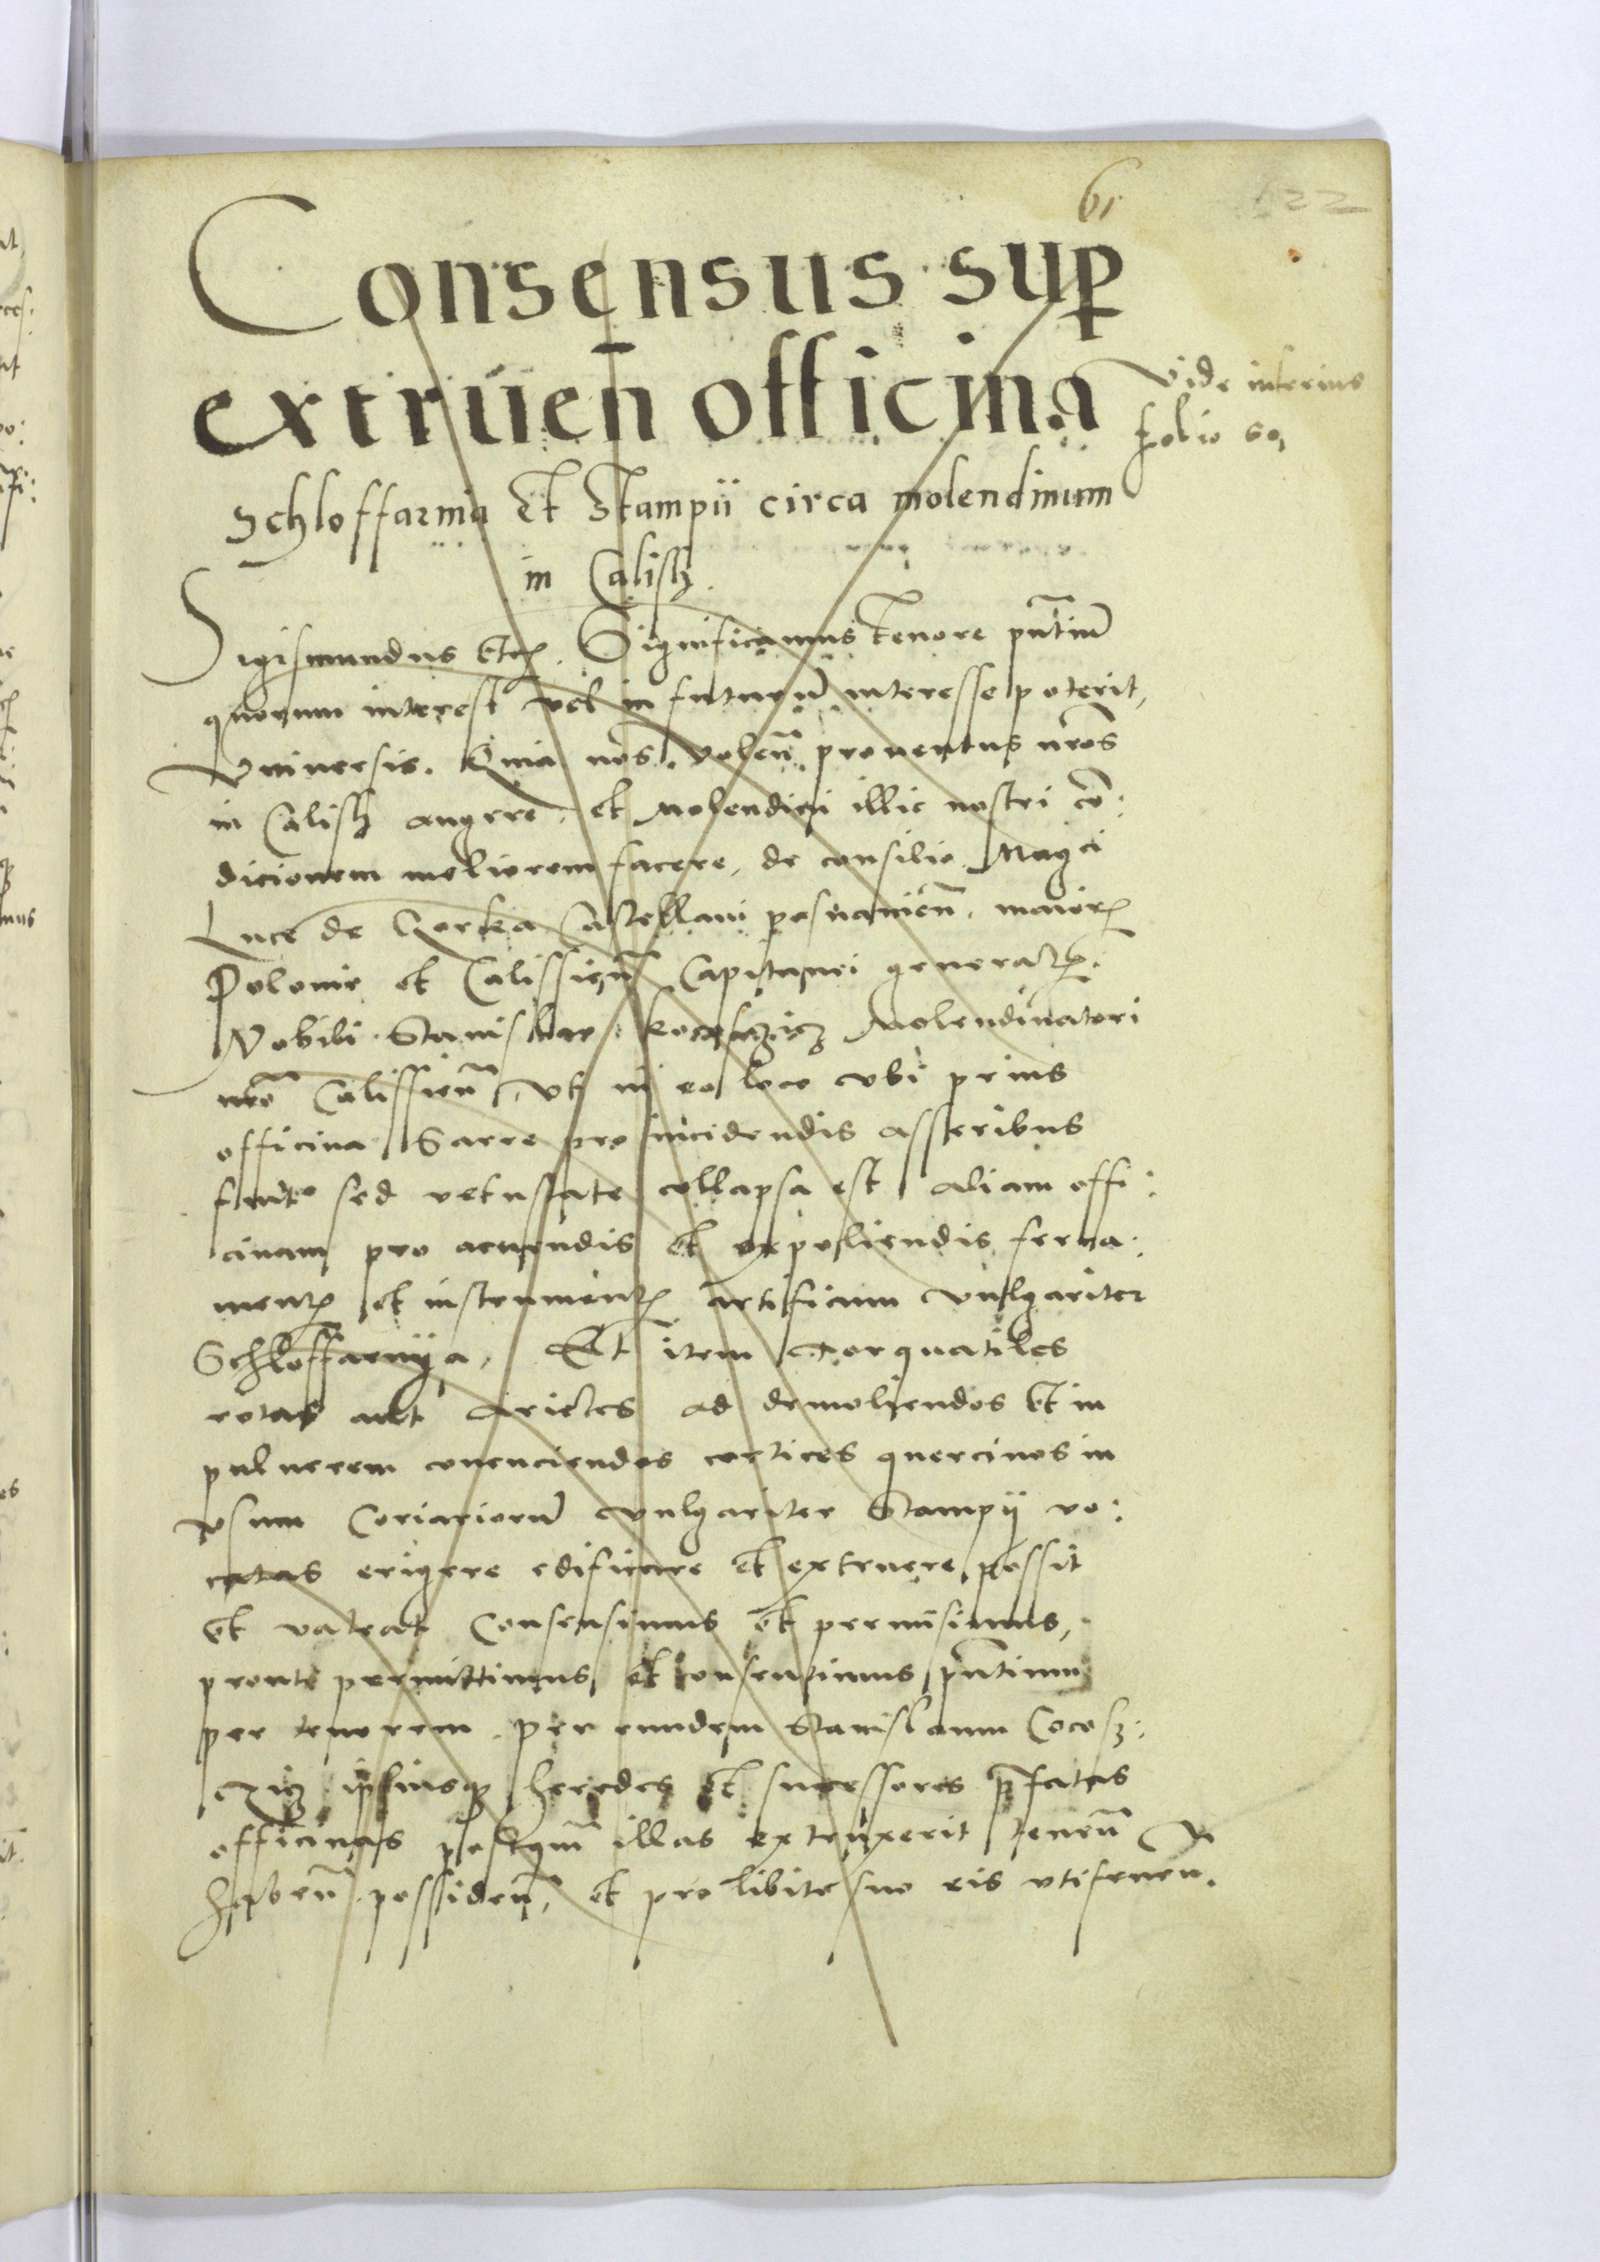 61
122
Consensus sup
extruen̄ officina
Vide inferius
folio 60,
Schloffarnia Et Stampii circa molendinum
in Calisch.
Sigismundus etc. Significamus tenore pn̄tium̄
quorum interest vel in futurum̄ interesse poterit,
Vniuersis. Quia nos volen̄ prouentus nr̄os
in Calisch augere et Molendini illic nostri co͞n:
dicionem meliorem facere, de consilio Magci
Luce de Gorka Castellani posnanien̄. maioris
Polonie et Calissien̄ Capitanei generalis.
Nobili Stanislao Kocosczicz Molendinatori
nr̄o Calissien̄, vt in eo loco vbi prius
officina Sarre pro incidendis asseribus
fuit sed vetustate collapsa est aliam offi:
cinam pro acuendis et expoliendis ferra:
mentis et instrumentis artificum vulgariter
Schloffarnya, Et item torquatiles
rotas aut Arietes ad demoliendos et in
puluerem conuenciendos cortices quercinos in
vsum Coriariorum̄ vulgariter Stampy vo:
catas erigere edificare et extruere possit
et valeat Consensimus et permisimus,
prout permittimus et consentimus pn̄tium
per tenorem. per eundem Stanislaum Cocosz:
czicz ipsiusque heredes et successores p̄fatas
officinas postqm̄ illas extruxerit tenen̄
haben̄ possiden̄, et pro libite suo eis vtifruen̄.